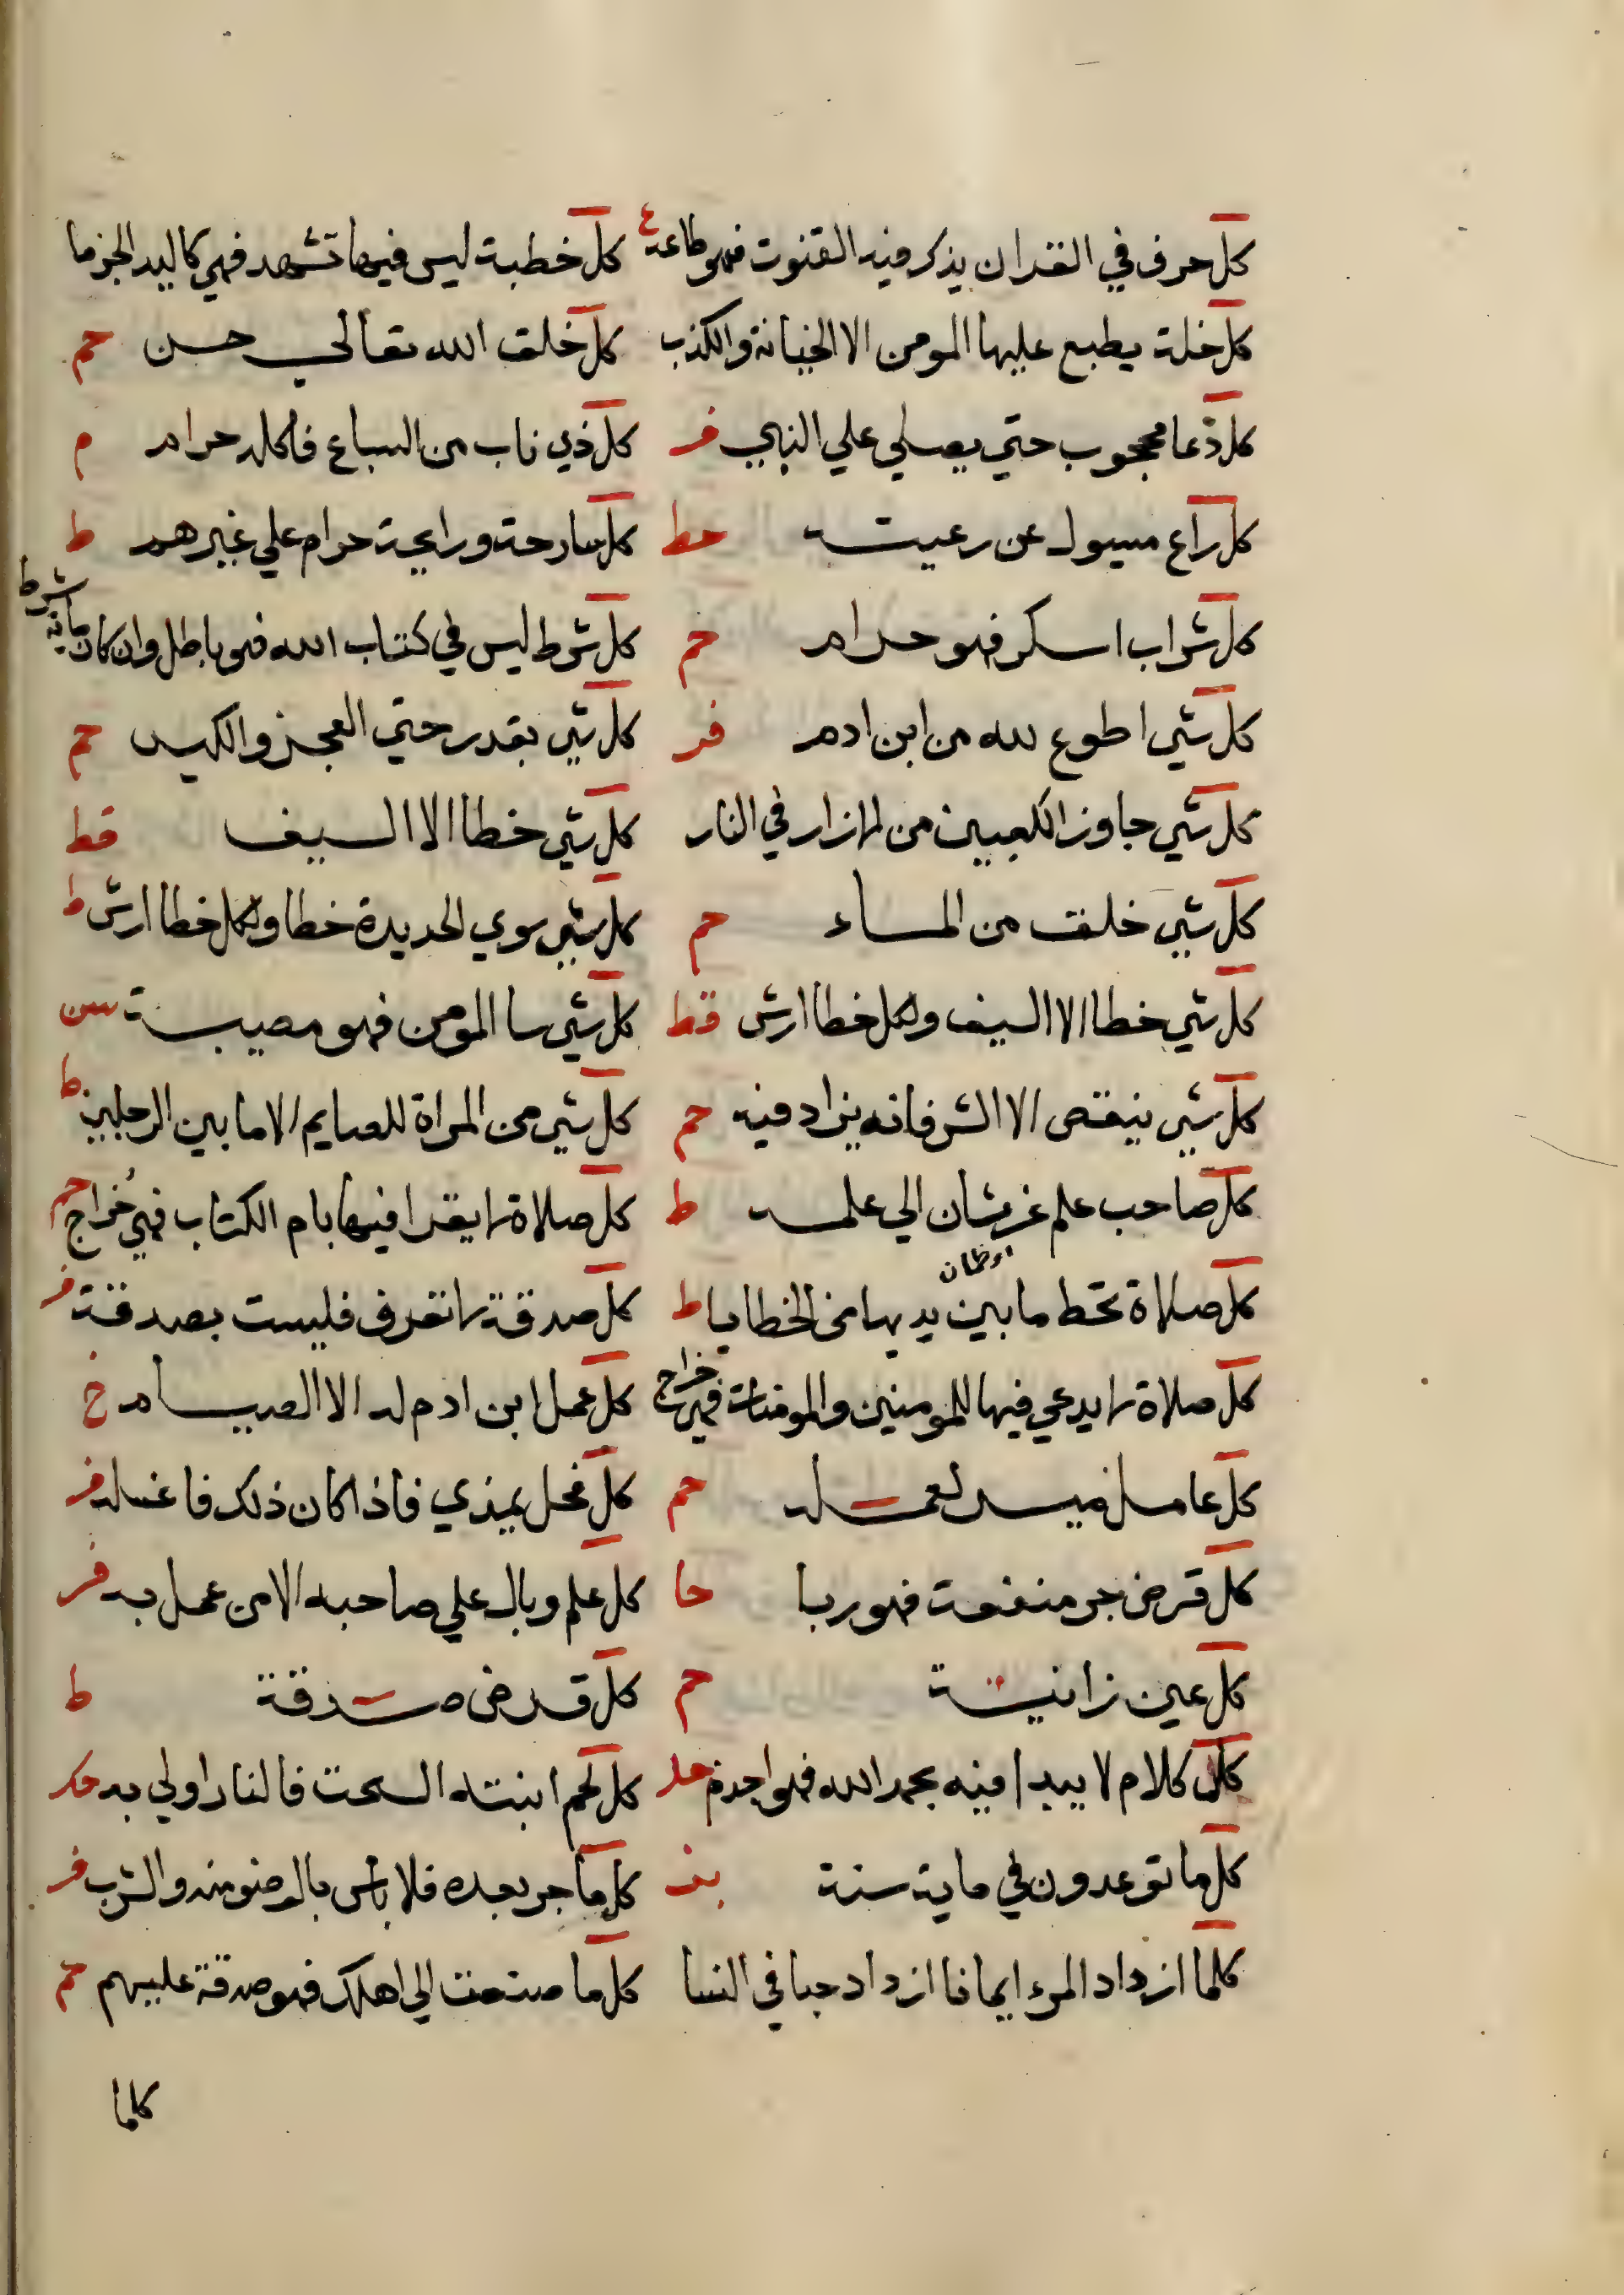 كل حرف في القران يذكر فيه القنوت فهو طاعة ع كل خطبة ليس فيها تشهد فهي كاليد الجزما
كل خلة يطبع عليها المومن الا الخيانة والكذب كل خلق الله تعالي حسن حم
كل دعا محجوب حتي يصلي علي النبي فر كل ذي ناب من السباع فاكله حرام م
كل راع مسيول عن رعيته حط كل سارحة ورايحة حرام علي غيرهم ط
كل شراب اسكر فهو حرام حم كل شرط ليس في كتاب الله فهو باطل وان كان ماية شرط
كل شي اطوع لله من ابن ادم فر كل شي بقدر حتي العجز والكيس حم
كل شي جاوز الكعبين من الازار في النار كل شي خطا الا السيف قط
كل شي خلق من الماء حم كل شي سوي الحديدة خطا ولكل خطا ارش ط
كل شي خطا الا السيف ولكل خطا ارش قط كل شي سا المومن فهو مصيبة سن
كل شي ينقص الا الشر فانه يزاد فيه حم كل شي من المراة للصايم الا ما بين الرجلين ط
كل صاحب علم غرشان الي علم ط كل صلاة لا يقرا فيها بام الكتاب فهي خراج حم
اوظمان
كل صلاة تحط ما بين يديها من الخطايا ط كل صدقة لا تقرف فليست بصدقة فر
كل صلاة لا يدعي فيها للمومنين والمومنات فهي خراج كل عمل ابن ادم له الا الصيام خ
كل عامل ميسر لعمله حم كل فحل يمذي فاذا كان ذلك فاغسله فر
كل قرض جر منفعة فهو ربا حا كل علم وبال علي صاحبه الا من عمل به فر
كل عين زانية حم كل قرض صدقة ط
كل كلام لا يبدا فيه بحمد الله فهو اجذم حد كل لحم انبته السحت فالنار اولي به مكر
كل ما توعدون في ماية سنة بز كل ما جر بعده فلا باس بالوضو منه والشرب فر
كلما ازداد المرء ايمانا ازداد حبا في النسا كل ما صنعت الي اهلك فهو صدقة عليهم حم
كلما